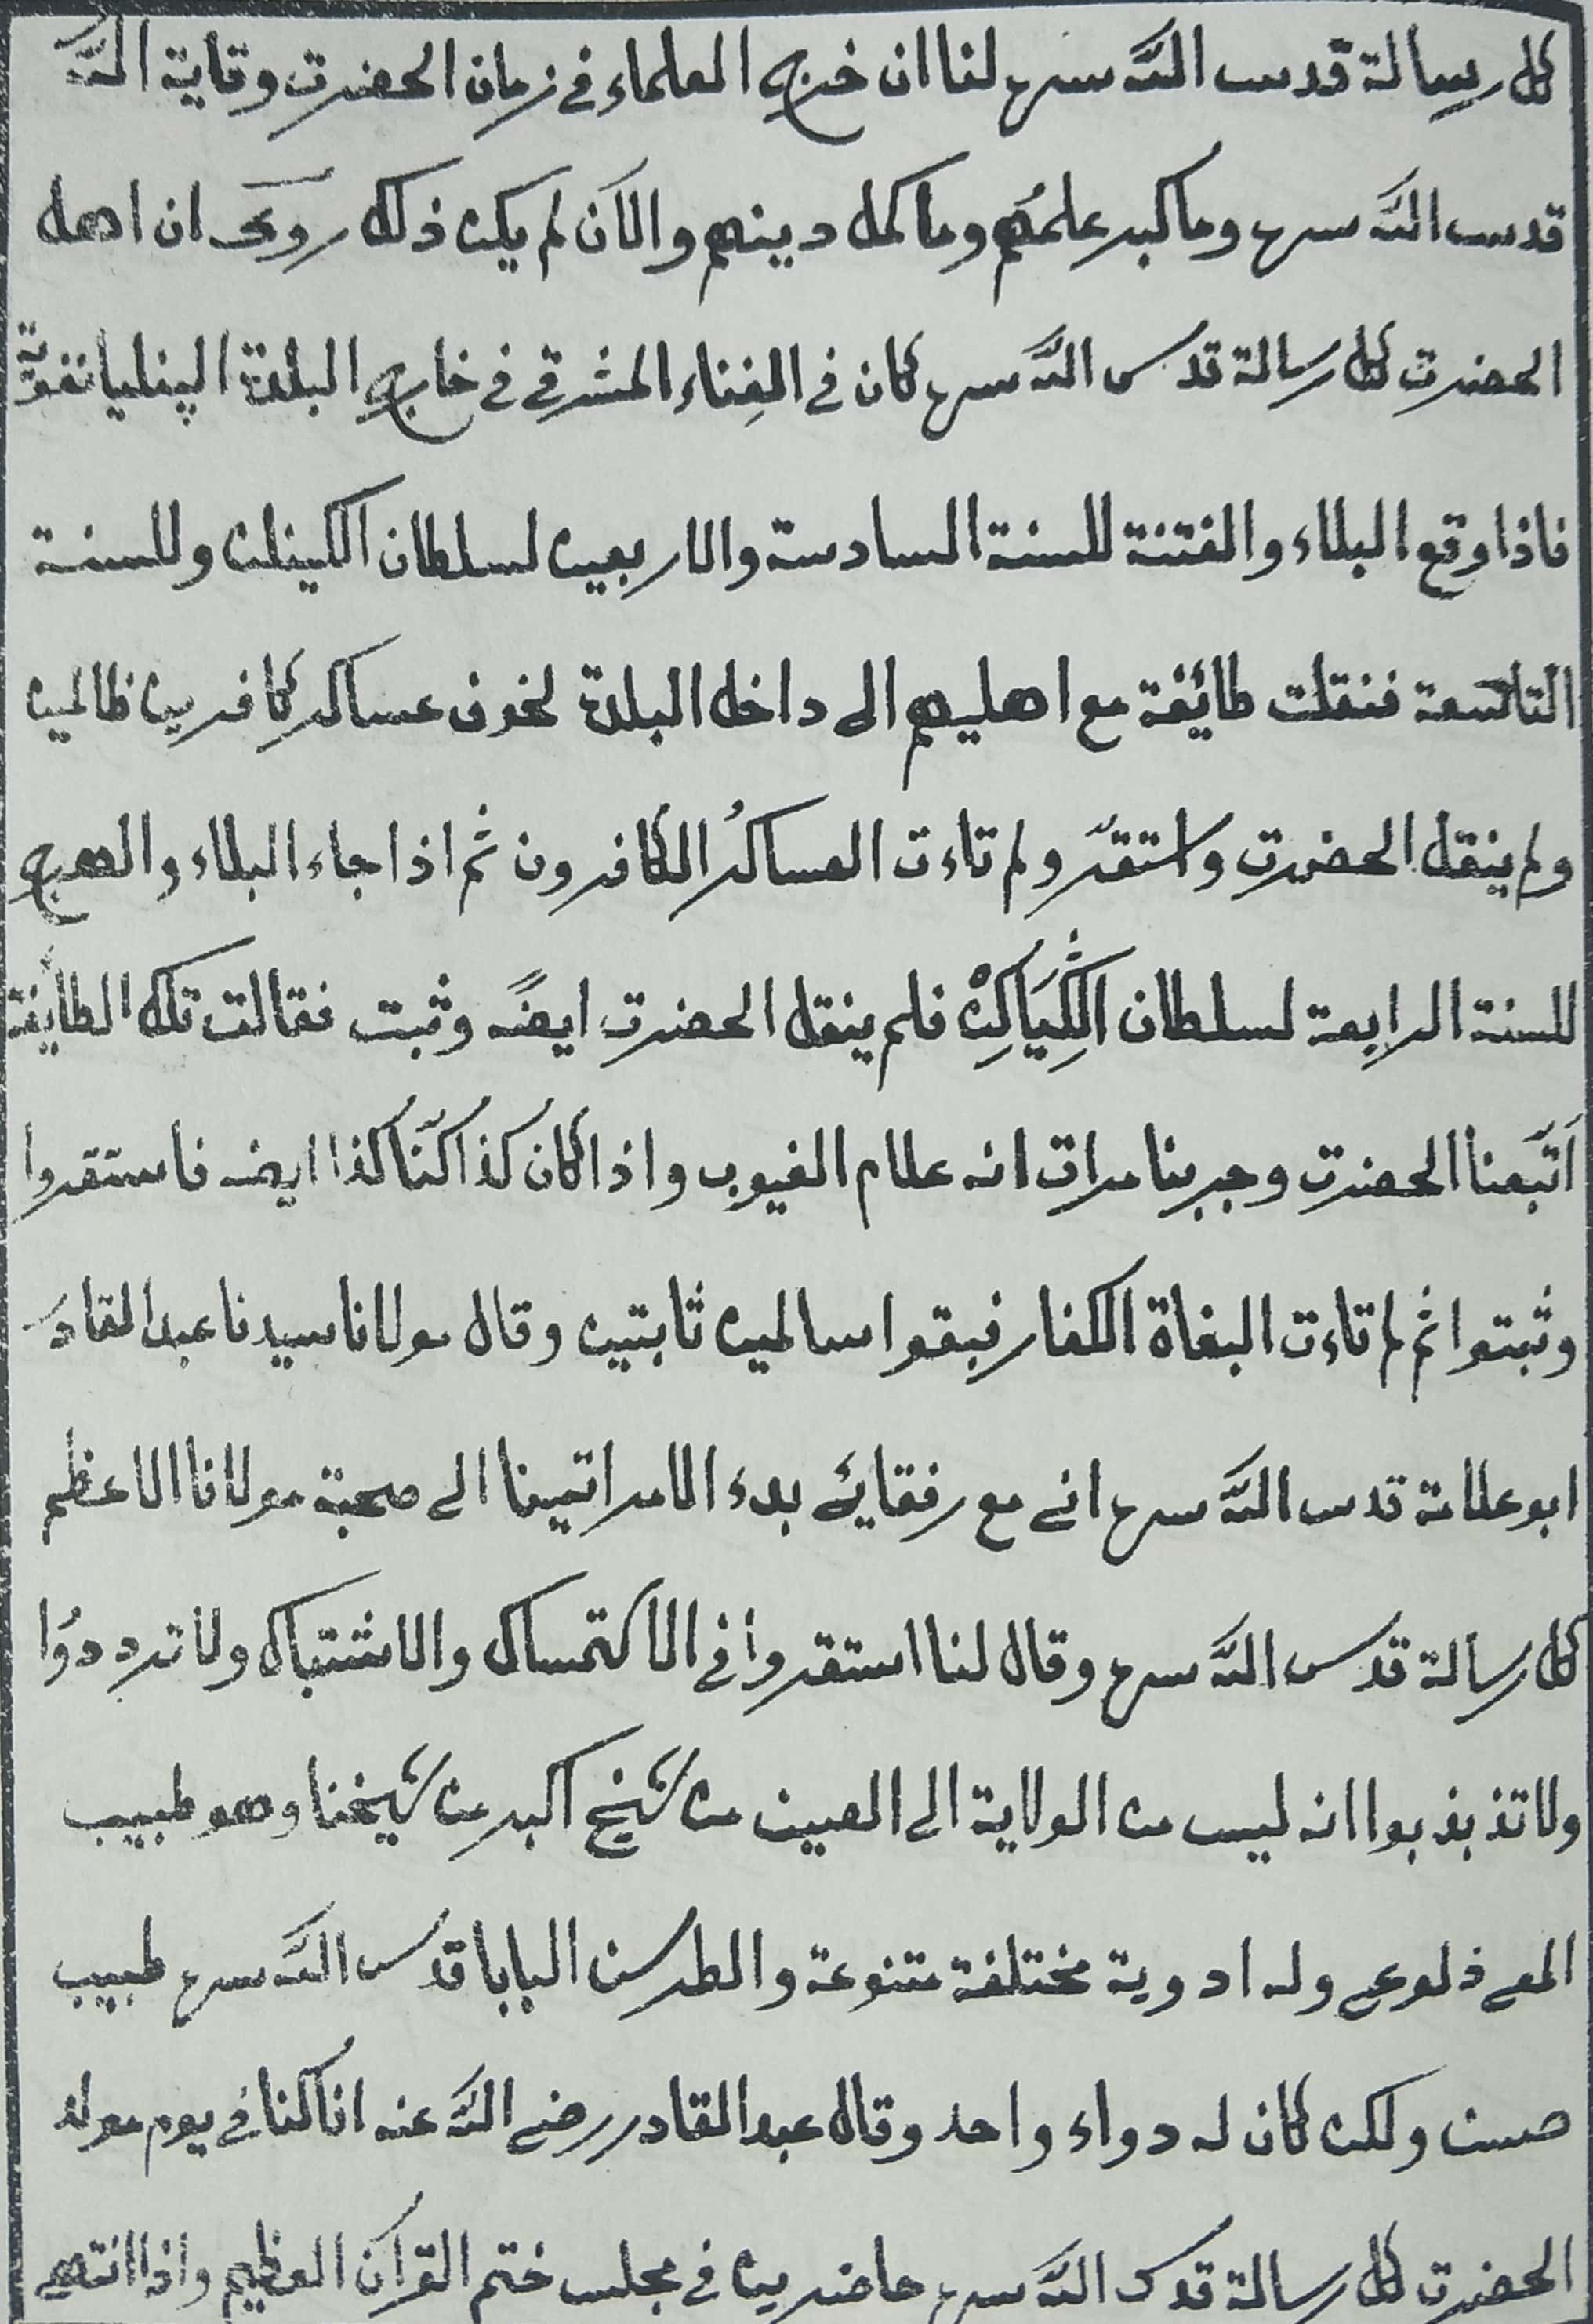 كل رسالة قدس الله سره لنا ان خرج العلماء في زمان الحضرت وقاية الله
قدس الله سره وما كبر علمُهم وما كمل دينهم والآن لم يكن ذلك روى ان اهل
الحضرت كل رسالة قدس الله سره كان في الفِناء المشرقي في خارج البلدة الپنليانفوية
فاذا وقع البلاء والفتنة للسنة السادسة والاربعين لسلطان الكينلن وللسنة
التاسعة فنقلت طائفة مع اهليهم الى داخل البلدة لخوف عساكر كافرين ظالمين
ولم ينقل الحضرت واستقرّ ولم تاءت العساكرُ الكافرون ثم اذا جاء البلاء والهرج
للسنة الرابعة لسلطان الكِيَاكِنْ فلم ينقل الحضرت ايضً وثبت فقالت تلك الطائفة
اَتّبعنا الحضرت وجربنا مرات انه علام الغيوب واذا كان كذا كنّا كذا ايضا فاستقروا
وثبتوا ثم لم تاءت البغاة الكفار فبقوا سالمين ثابتين وقال مولانا سيدنا عبد القادر
ابو علامة قدس الله سره اني مع رفقايئ بدء الامر اتينا الى صحبة مولانا الاعظم
كل رسالة قدس الله سره وقال لنا استقروا في الاكتمساك والاشتباك ولا تردّدوا
ولا تذبذبوا انه ليس من الولاية الى الصين من شيخ اكبر من شيخنا وهو طبيب
المعي ذلوعي وله ادوية مختلفة متنوعة والطرسن البابا قدس الله سره طبيب
حسن ولكن كان له دواء واحد وقال عبد القادر رضي الله عنه انا كنا في يوم مولد
الحضرت كل رسالة قدس الله سره حاضرين في مجلس ختم القرآن العظيم واذا انتهى